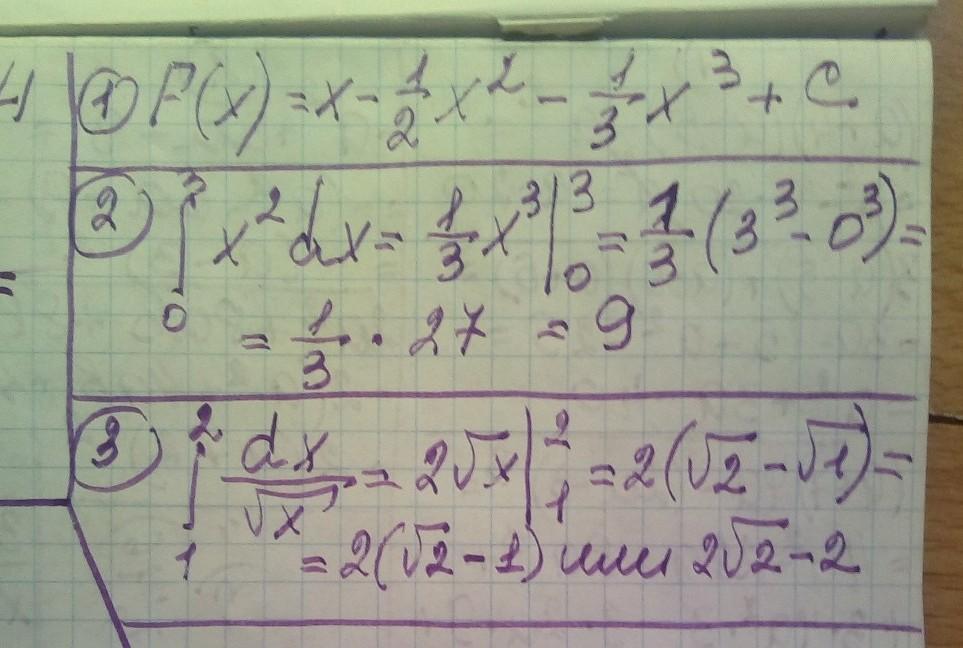 ① F(x) = x - 1/2 x² - 1/3 x³ + C
② ∫₀³ x² dx = 1/3 x³ |₀³ = 1/3 (3³ - 0³) =
= 1/3 · 27 = 9
③ ∫₁² dx/√x = 2√x |₁² = 2(√2 - √1) =
= 2(√2 - 1) или 2√2 - 2